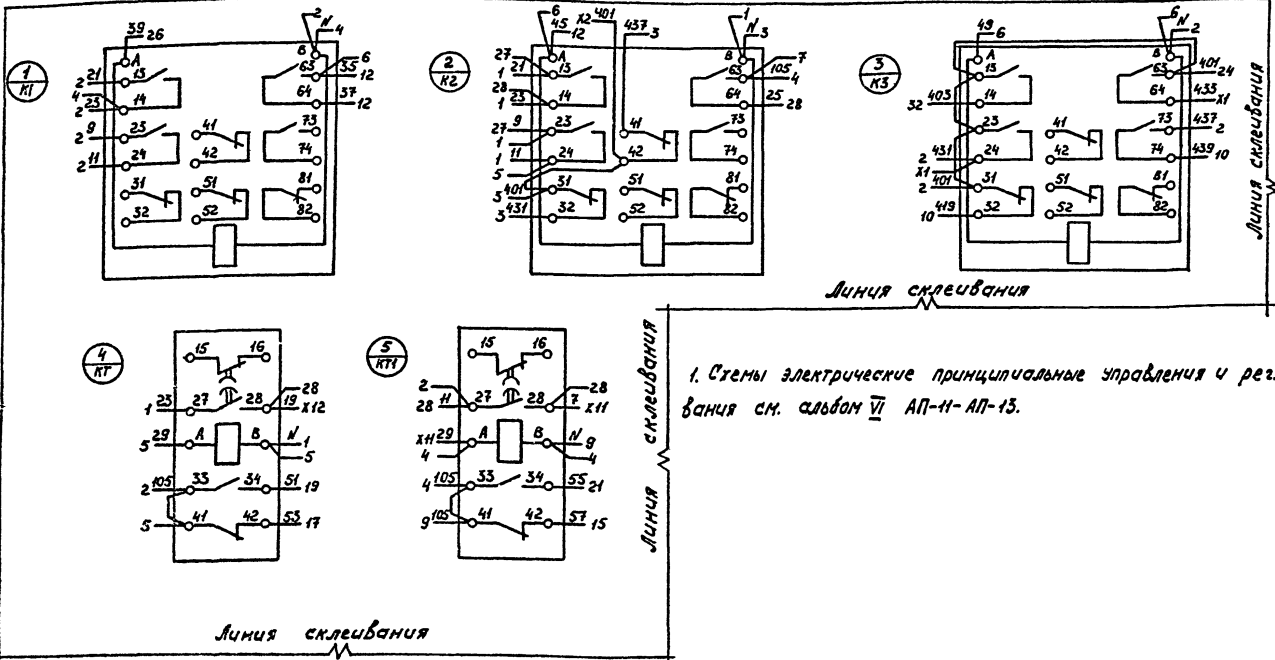 1
К1
39
26
2
N
4
А
В
21
2
13
4
23
2
14
9
2
23
11
2
24
31
32
41
42
51
52
63
6
55
12
64
37
12
73
74
81
82
2
К2
6
45
12
Х2
401
437
3
1
N
3
А
В
27
21
1
13
28
23
1
14
9
27
1
23
1
11
5
24
401
3
31
3
431
32
41
42
51
52
63
7
105
4
64
25
28
73
74
81
82
3
К3
49
6
6
N
2
А
В
13
403
32
14
23
2
431
24
Х1
2
401
31
10
419
32
41
42
51
52
63
401
24
64
433
Х1
73
437
2
74
439
10
81
82
Линия склеивания
Линия склеивания
4
КТ
15
16
1
23
27
28
28
19
Х12
5
29
А
В
N
1
5
2
105
33
34
51
19
5
41
42
53
17
5
КТ1
15
16
2
28
11
27
28
28
7
Х11
Х11
29
4
А
В
N
9
4
4
105
33
34
55
21
9
105
41
42
57
15
Линия склеивания
1. Схемы электрические принципиальные управления и рег
вания см. альбом VI АП-11-АП-13.
Линия склеивания